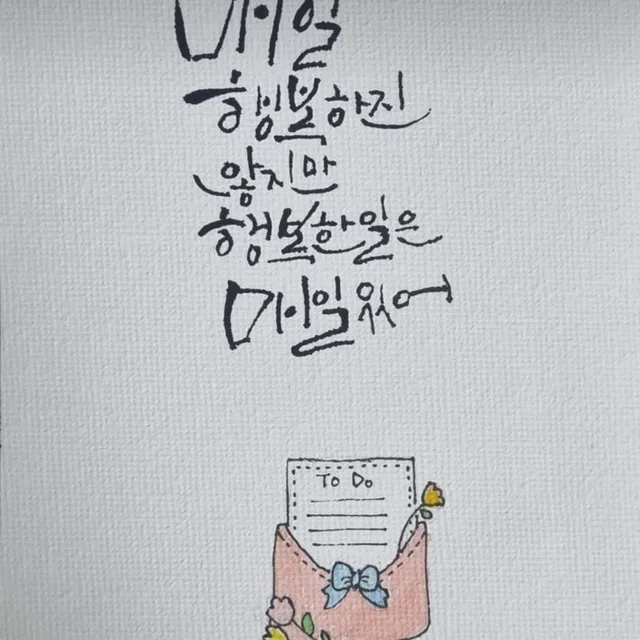 매일
행복하진
않지만
행복한 일은
매일 있어
To Do